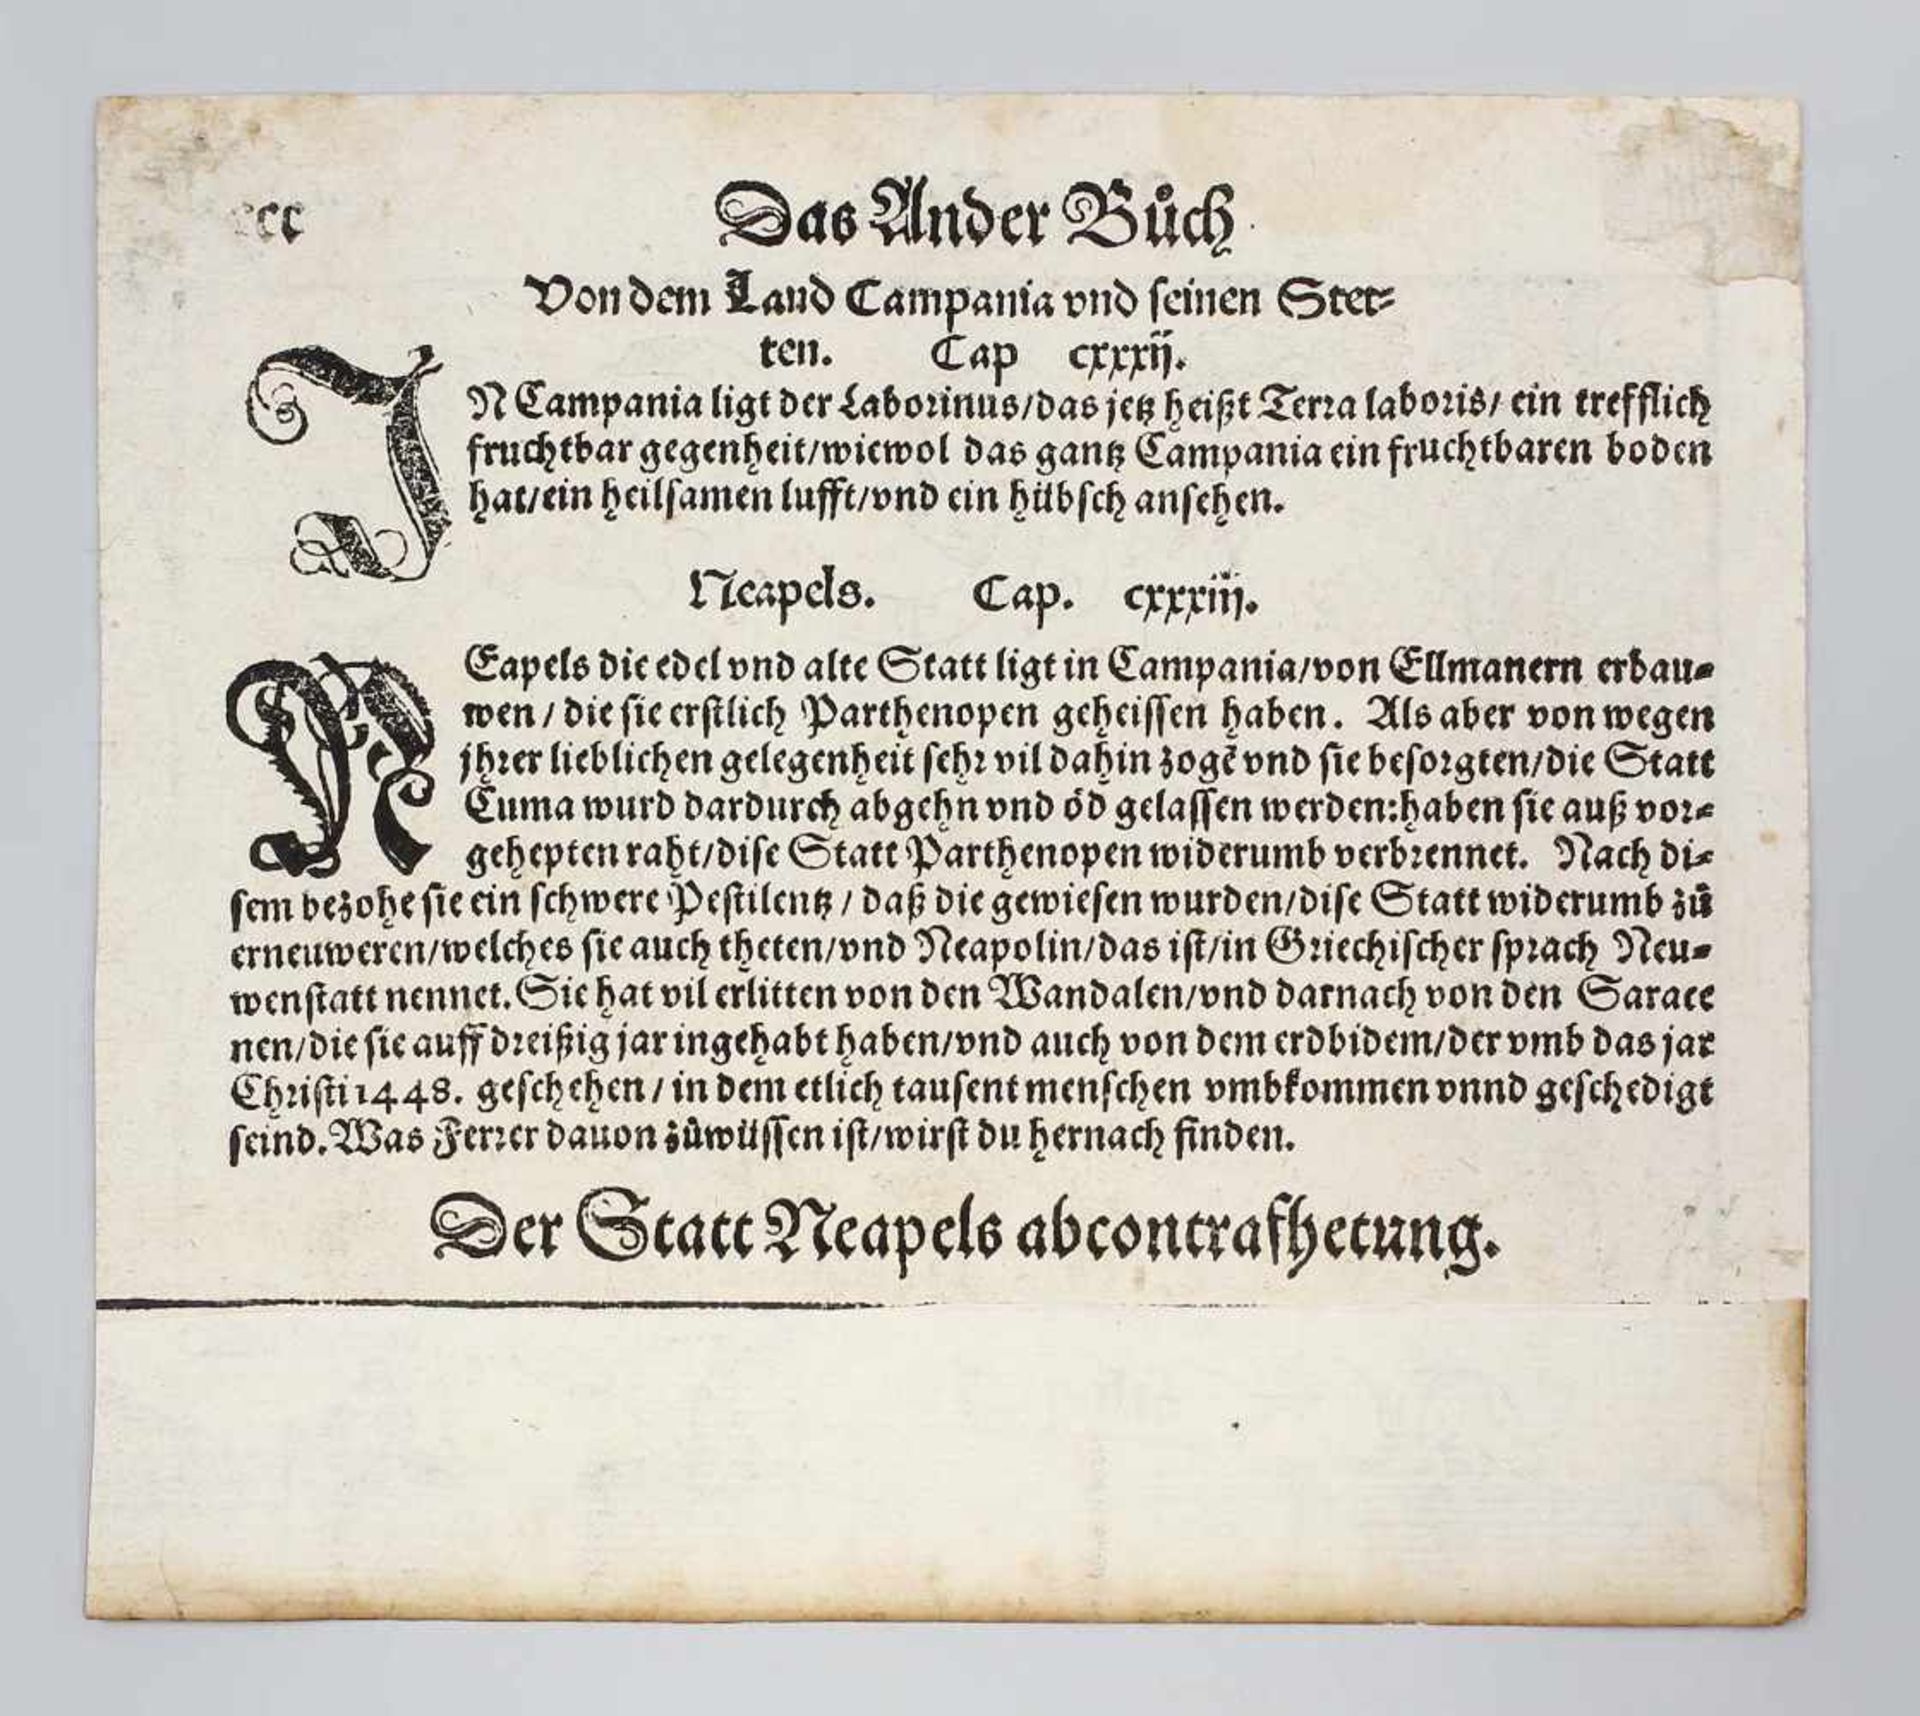 ccc
Das Ander Bůch
Von dem Land Campania vnd seinen Stet⸗
ten. Cap cxxxij.
IN Campania ligt der Laborinus/das jetz heißt Terra laboris/ ein trefflich
fruchtbar gegenheit/wiewol das gantz Campania ein fruchtbaren boden
hat/ein heilsamen lufft/vnd ein hübsch ansehen.
Neapels. Cap. cxxxiij.
NEapels die edel vnd alte Statt ligt in Campania/von Ellmanern erbau⸗
wen / die sie erstlich Parthenopen geheissen haben. Als aber von wegen
jhrer lieblichen gelegenheit sehr vil dahin zogē vnd sie besorgten/die Statt
Cuma wurd dardurch abgehn vnd öd gelassen werden:haben sie auß vor⸗
gehepten raht/dise Statt Parthenopen widerumb verbrennet. Nach di⸗
sem bezohe sie ein schwere Pestilentz / daß die gewiesen wurden/dise Statt widerumb zů
erneuweren/welches sie auch theten/vnd Neapolin/das ist/in Griechischer sprach Neu⸗
wenstatt nennet. Sie hat vil erlitten von den Wandalen/vnd darnach von den Sarace
nen/die sie auff dreißig jar ingehabt haben/vnd auch von dem erdbidem/der vmb das jar
Christi 1448. geschehen / in dem etlich tausent menschen vmbkommen vnnd geschedigt
seind. Was Ferrer dauon zůwüssen ist/wirst du hernach finden.
Der Statt Neapels abcontrafhetung.